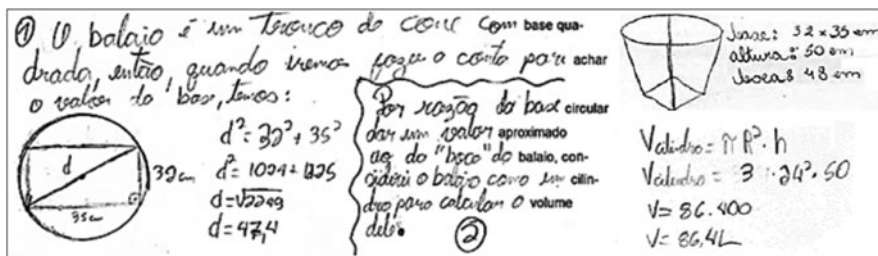 ① O balaio é um Tronco de cone com base qua-
drada, então, quando iremos fazer o conto para achar
o valor da base, temos:
d
32cm
35cm
d² = 32² + 35²
d² = 1024 + 1225
d = √2249
d = 47,4
Por razão da base circular
dar um valor aproximado
ao do "boca" do balaio, con-
siderei o balaio como um cilin-
dro para calcular o volume
dele.
②
base: 32 x 35 cm
altura: 50 cm
boca: 48 cm
Vcilindro = π R² . h
Vcilindro = 3 . 24² . 50
V = 86.400
V = 86,4L